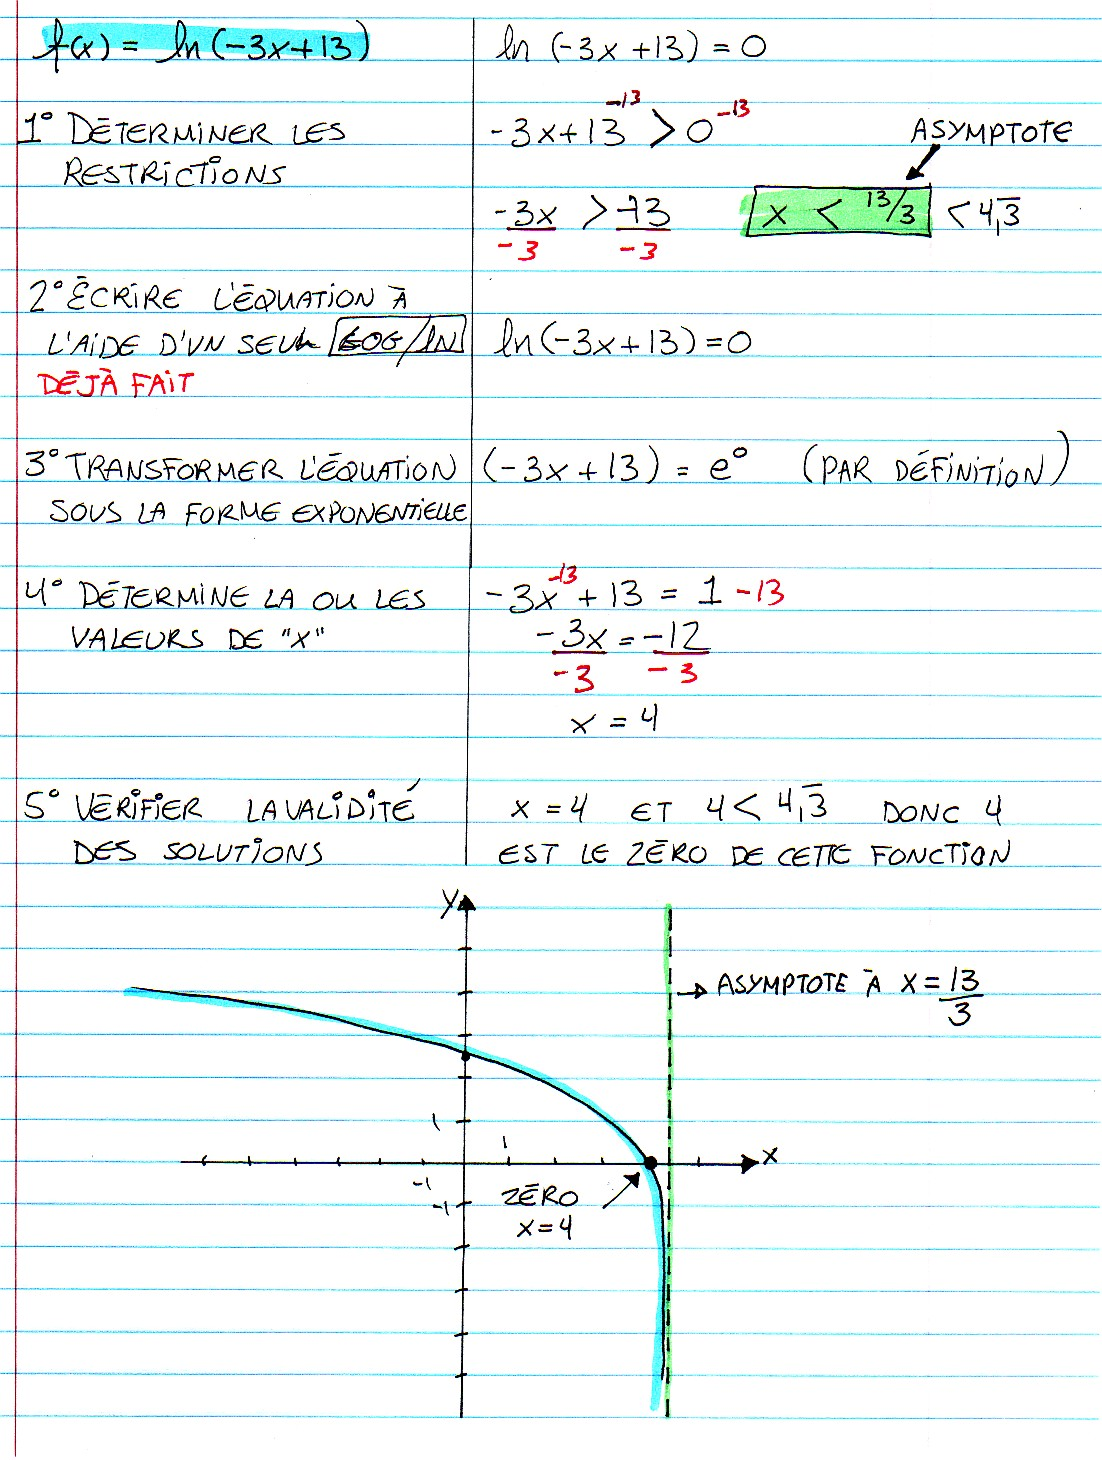 f(x) = ln(-3x+13)
ln (-3x+13) = 0
1° DÉTERMINER LES
RESTRICTIONS
-3x+13 -13 > 0 -13
ASYMPTOTE
-3x > -13
-3 -3
x < 13/3 < 4,3̅
2° ÉCRIRE L'ÉQUATION À
L'AIDE D'UN SEUL LOG/LN
DÉJÀ FAIT
ln(-3x+13) = 0
3° TRANSFORMER L'ÉQUATION
SOUS LA FORME EXPONENTIELLE
(-3x+13) = e⁰ (PAR DÉFINITION)
4° DÉTERMINE LA OU LES
VALEURS DE "X"
-3x -13 + 13 = 1 -13
-3x = -12
-3 -3
x = 4
5° VÉRIFIER LA VALIDITÉ
DES SOLUTIONS
x = 4 ET 4 < 4,3̅ DONC 4
EST LE ZÉRO DE CETTE FONCTION
y
ASYMPTOTE À x = 13/3
1
1
x
-1
-1
ZÉRO
x = 4